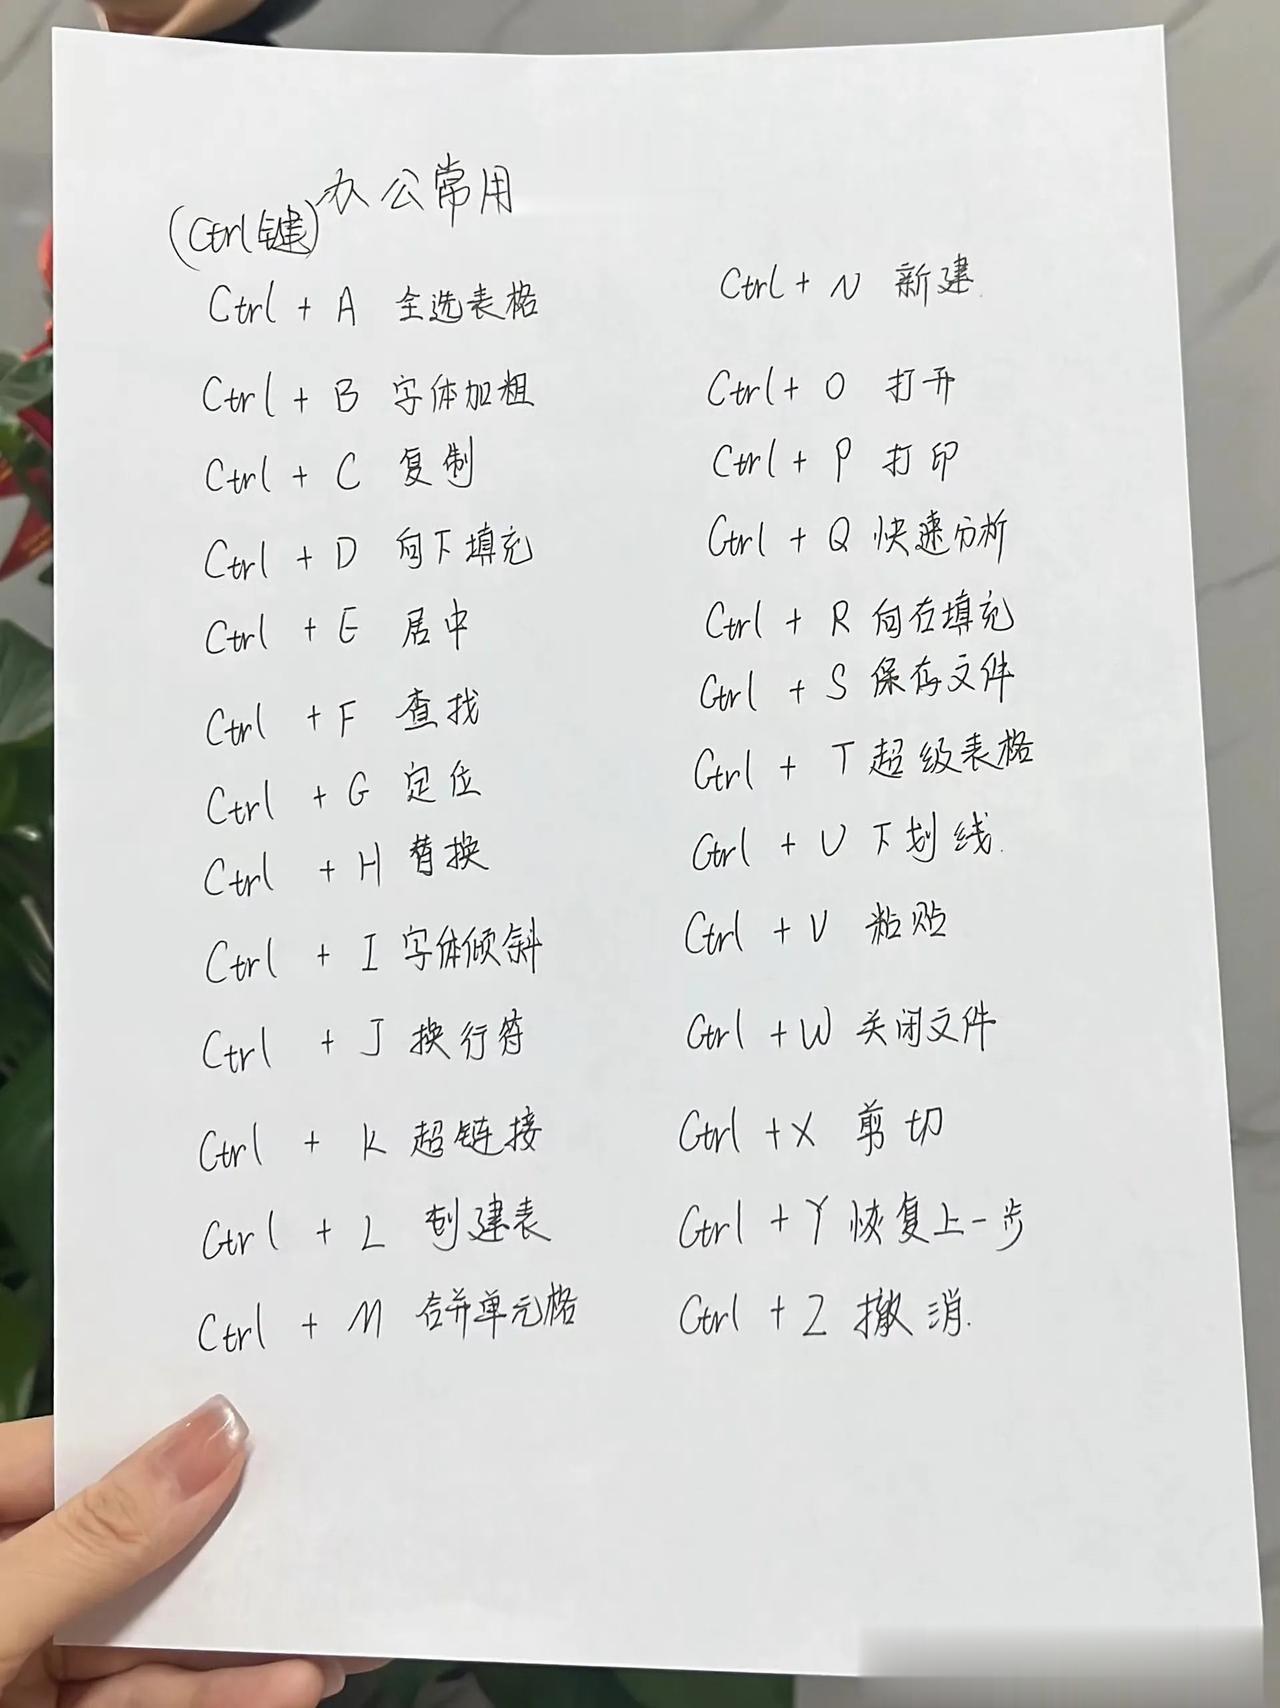 办公常用
(Ctrl键)
Ctrl + A 全选表格
Ctrl + B 字体加粗
Ctrl + C 复制
Ctrl + D 向下填充
Ctrl + E 居中
Ctrl + F 查找
Ctrl + G 定位
Ctrl + H 替换
Ctrl + I 字体倾斜
Ctrl + J 换行符
Ctrl + K 超链接
Ctrl + L 创建表
Ctrl + M 合并单元格
Ctrl + N 新建
Ctrl + O 打开
Ctrl + P 打印
Ctrl + Q 快速分析
Ctrl + R 向右填充
Ctrl + S 保存文件
Ctrl + T 超级表格
Ctrl + U 下划线
Ctrl + V 粘贴
Ctrl + W 关闭文件
Ctrl + X 剪切
Ctrl + Y 恢复上一步
Ctrl + Z 撤消